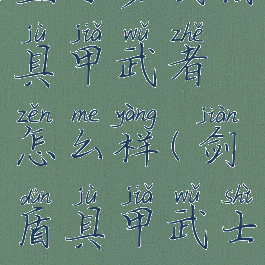 jù jiǎ wǔ zhě
具甲武者
zěn me yàng jiàn
怎么样(剑
dùn jù jiǎ wǔ shì
盾具甲武士